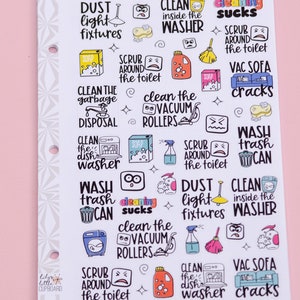 DUST
light
fixtures
CLEAN
inside the
WASHER
cleaning
SUCKS
SCRUB
AROUND
the toilet
SCRUB
AROUND
the toilet
VAC SOFA
cracks
CLEAN the
garbage
DISPOSAL
clean the
VACUUM
ROLLERS
WASH
trash
CAN
CLEAN
the
dish
washer
SCRUB
AROUND
the toilet
WASH
trash
CAN
cleaning
SUCKS
DUST
light
fixtures
CLEAN
inside the
WASHER
clean the
VACUUM
ROLLERS
SCRUB
AROUND
the toilet
CLEAN
the
dish
washer
VAC SOFA
cracks